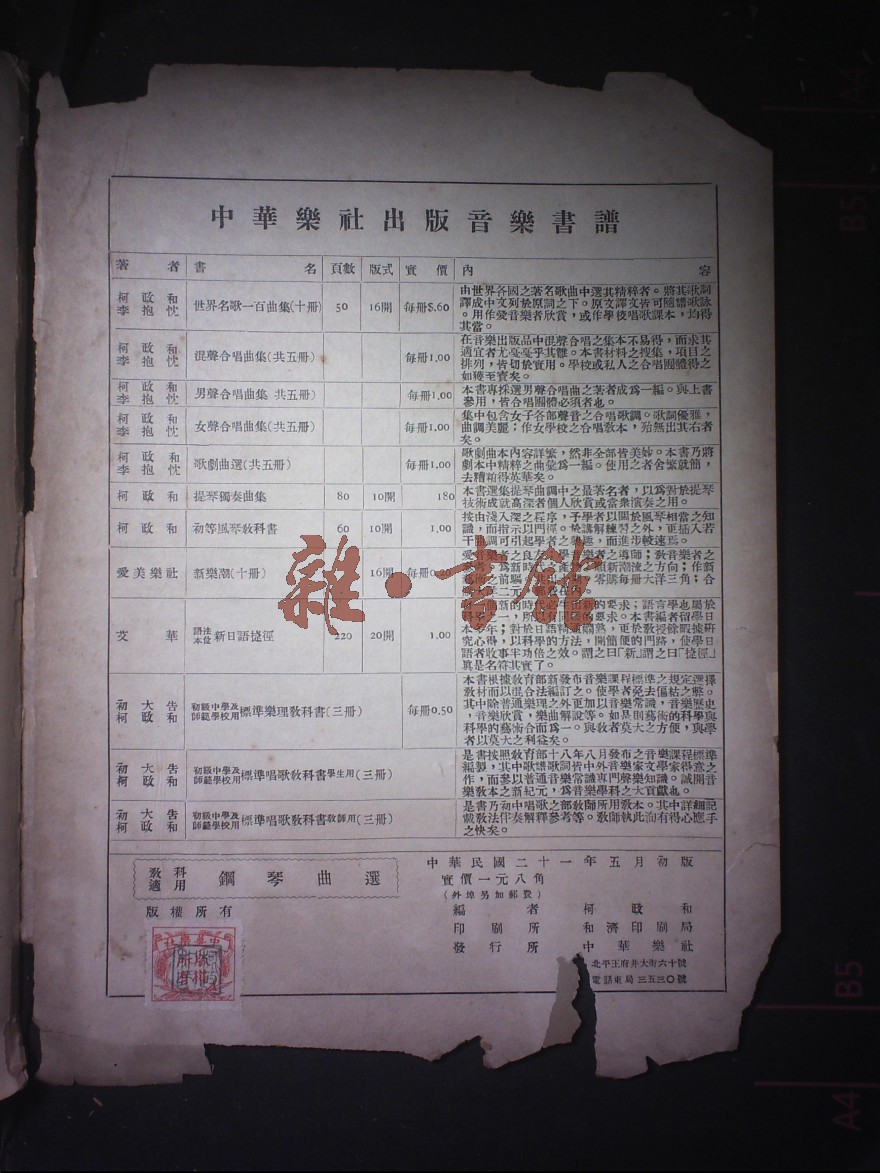 中華樂社出版音樂書譜
著者 書名 頁數 版式 實價 內容
柯政和 李抱忱 世界名歌一百曲集(十冊) 50 16開 每冊$.60
由世界各國之著名歌曲中選其精粹者。將其歌詞
譯成中文列於原詞之下。原文譯文皆可隨譜歌詠
。用作愛音樂者欣賞，或作學校唱歌課本，均得
其當。
柯政和 李抱忱 混聲合唱曲集(共五冊) 每冊1.00
在音樂出版品中混聲合唱之集本不易得，而求其
適宜者尤戞戞乎其難。本書材料之搜集，項目之
排列，皆切於實用。學校或私人之合唱團體得之
如獲至寶矣。
柯政和 李抱忱 男聲合唱曲集 共五冊) 每冊1.00
本書專採選男聲合唱曲之著者成爲一編。與上書
參用，皆合唱團體必須者也。
柯政和 李抱忱 女聲合唱曲集(共五冊) 每冊1.00
集中包含女子各部聲音之合唱歌調。歌詞優雅，
曲調美麗；作女學校之合唱敎本，殆無出其右者
矣。
柯政和 李抱忱 歌劇曲選(共五冊) 每冊1.00
歌劇曲本內容詳繁，然非全部皆美妙。本書乃將
劇本中精粹之曲彙爲一編。使用之者舍繁就簡，
去糟粕得英華矣。
柯政和 提琴獨奏曲集 80 10開 180
本書選集提琴曲調中之最著名者，以爲對於提琴
技術成就高深者個人欣賞或當衆演奏之用。
柯政和 初等風琴敎科書 60 10開 1.00
按由淺入深之程序，予學者以關於風琴相當之知
識，而指示以門徑。於講解練習之外，更插入若
干曲調可引起學者之興趣，而進步較速焉。
愛美樂社 新樂潮(十冊) 16開 每冊0.20
愛音樂者之良友；學音樂者之導師；敎音樂者之
零購每冊大洋三角；合
艾華 語法本位 新日語捷徑 220 20開 1.00
新的時代必生出新的要求；語言學也屬於
要求。本書編者留學日
本多年；對於日語精通嫺熟，更於敎授餘暇據研
究心得，以科學的方法，開簡便的門路，使學日
語者收事半功倍之效。謂之曰「新」謂之曰「捷徑」
真是名符其實了。
初大告 柯政和 初級中學及師範學校用 標準樂理敎科書(三冊) 每冊0.50
本書根據敎育部新發布音樂課程標準之規定選擇
敎材而以混合法編訂之。使學者免去偏枯之弊。
其中除普通樂理之外更加以音樂常識，音樂歷史
，音樂欣賞，樂曲解說等。如是則藝術的科學與
科學的藝術合而爲一。與敎者莫大之方便，與學
者以莫大之利益矣。
初大告 柯政和 初級中學及師範學校用 標準唱歌敎科書學生用(三冊)
是書按照敎育部十八年八月發布之音樂課程標準
編製，其中歌譜歌詞皆中外音樂家文學家得意之
作，而參以普通音樂常識專門聲樂知識。誠開音
樂敎本之新紀元，爲音樂學科之大貢獻也。
初大告 柯政和 初級中學及師範學校用 標準唱歌敎科書敎師用(三冊)
是書乃初中唱歌之部敎師所用敎本。其中詳細記
載敎法伴奏解釋參考等。敎師執此洵有得心應手
之快矣。
敎科適用 鋼琴曲選
版權所有
中華民國二十一年五月初版
實價一元八角
(外埠另加郵費)
編者 柯政和
印刷所 和濟印刷局
發行所 中華樂社
北平王府井大街六十號
電話東局三五三〇號
雜·書館